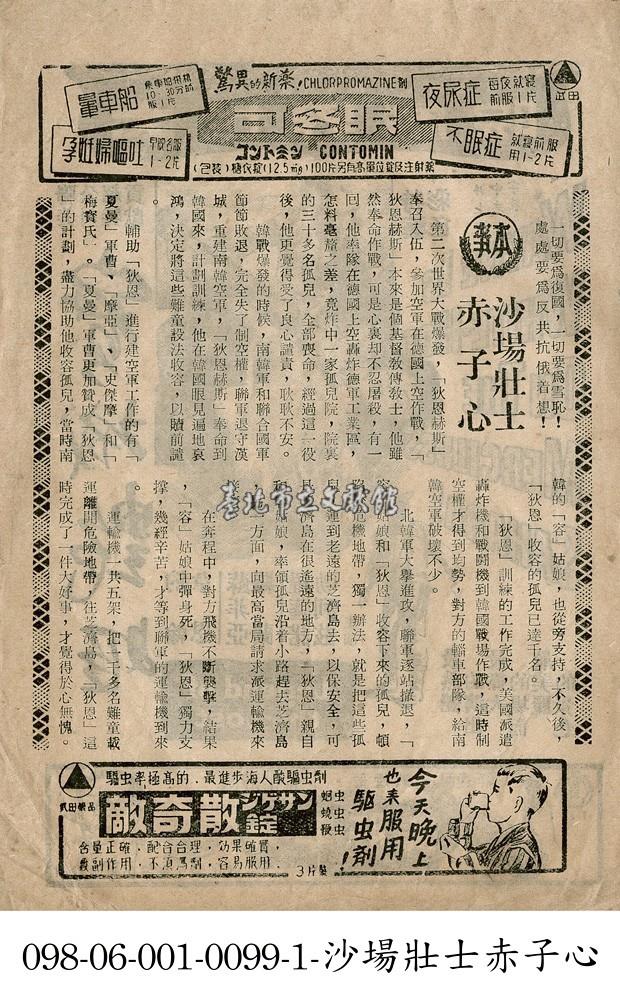 驚異的新薬!CHLORPROMAZINE劑
暈車船
乘車船前
10-30分前
服1片
孕妊婦嘔吐
早晚各服
1-2片
可多眠
コントミン CONTOMIN
(包装)糖衣錠(12.5mg)100片另有高單位錠及注射薬
夜尿症
每夜就寝
前服1片
不眠症
就寝前服
用1-2片
武田
一切要爲復國,一切要爲雪恥!
處處要爲反共抗俄着想!
本事
沙場壯士
赤子心
第二次世界大戰爆發,「狄恩赫斯」
奉召入伍,參加空軍在德國上空作戰,「
狄恩赫斯」本來是個基督敎傳敎士,他雖
然奉命作戰,可是心裏却不忍屠殺,有一
回,他奉隊在德國上空轟炸德軍工業區,
怎料毫釐之差,竟炸中一家孤兒院,院裏
的三十多名孤兒,全部喪命,經過這一役
後,他更覺得受了良心譴責,耿耿不安。
韓戰爆發的時候,南韓軍和聯合國軍
節節敗退,完全失了制空權,聯軍退守漢
城,重建南韓空軍,「狄恩赫斯」奉命到
韓國來,計劃訓練,他在韓國眼見遍地哀
鴻,決定將這些難童設法收容,以贖前譴
。
輔助「狄恩」進行建空軍工作的有「
夏曼」軍曹,「摩亞」、「史傑摩」和「
梅賓氏」。「夏曼」軍曹更加贊成「狄恩
」的計劃,盡力協助他收容孤兒,當時南
韓的「容」姑娘,也從旁支持,不久後,
「狄恩」收容的孤兒已達千名。
「狄恩」訓練的工作完成,美國派遣
轟炸機和戰鬪機到韓國戰場作戰,這時制
空權才得到均勢,對方的輜車部隊,給南
韓空軍破壞不少。
北韓軍大擧進攻,聯軍逐站撤退,「
容」姑娘和「狄恩」收容下來的孤兒,頓
陷危機地帶,獨一辦法,就是把這些孤
兒運到老遠的芝濟島去,以保安全,可
是濟島在很遙遠的地方,「狄恩」親自
和容姑娘,率領孤兒沿着小路趕去芝濟島
,一方面,向最高當局請求派運輸機來
。
在奔程中,對方飛機不斷襲擊,結果
,「容」姑娘中彈身死,「狄恩」獨力支
撑,幾經辛苦,才等到聯軍的運輸機到來
。
運輸機一共五架,把一千多名難童載
運離開危險地帶,往芝濟島,「狄恩」這
時完成了一件大好事,才覺得於心無愧。
臺北市立文獻館
武田藥品
驅虫率極高的,最進步海人酸驅虫劑
敵奇散錠
ジゲサン
蛔虫
蟯虫
鞭虫
含量正確,配合合理,効果確實,
無副作用,不須馬劑,容易服用。
3片裝
今天晚上
也來服用
驅虫劑!
098-06-001-0099-1-沙場壯士赤子心